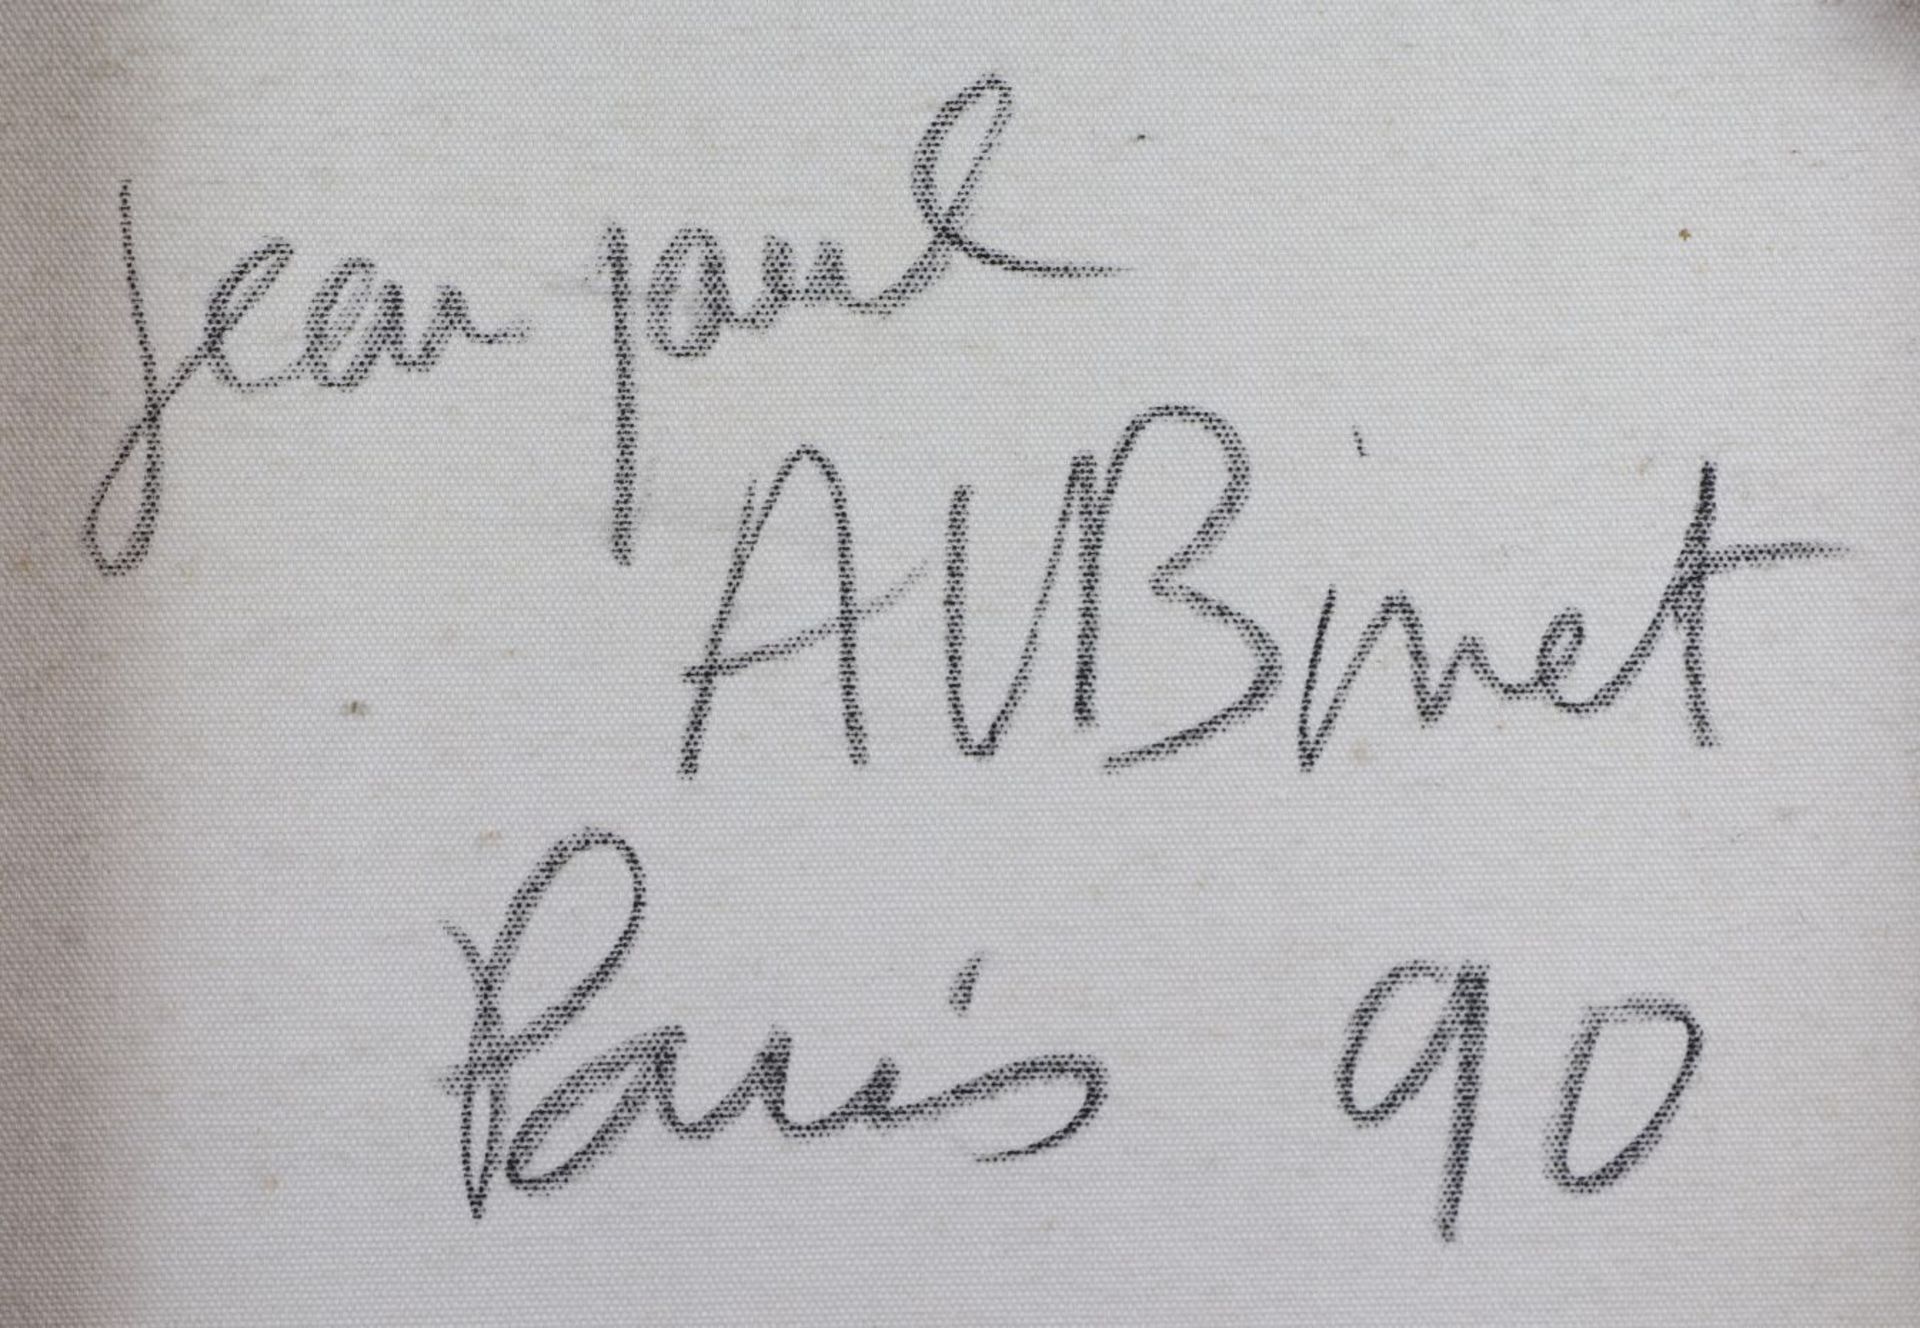 jean paul
AUBinet
Paris 90